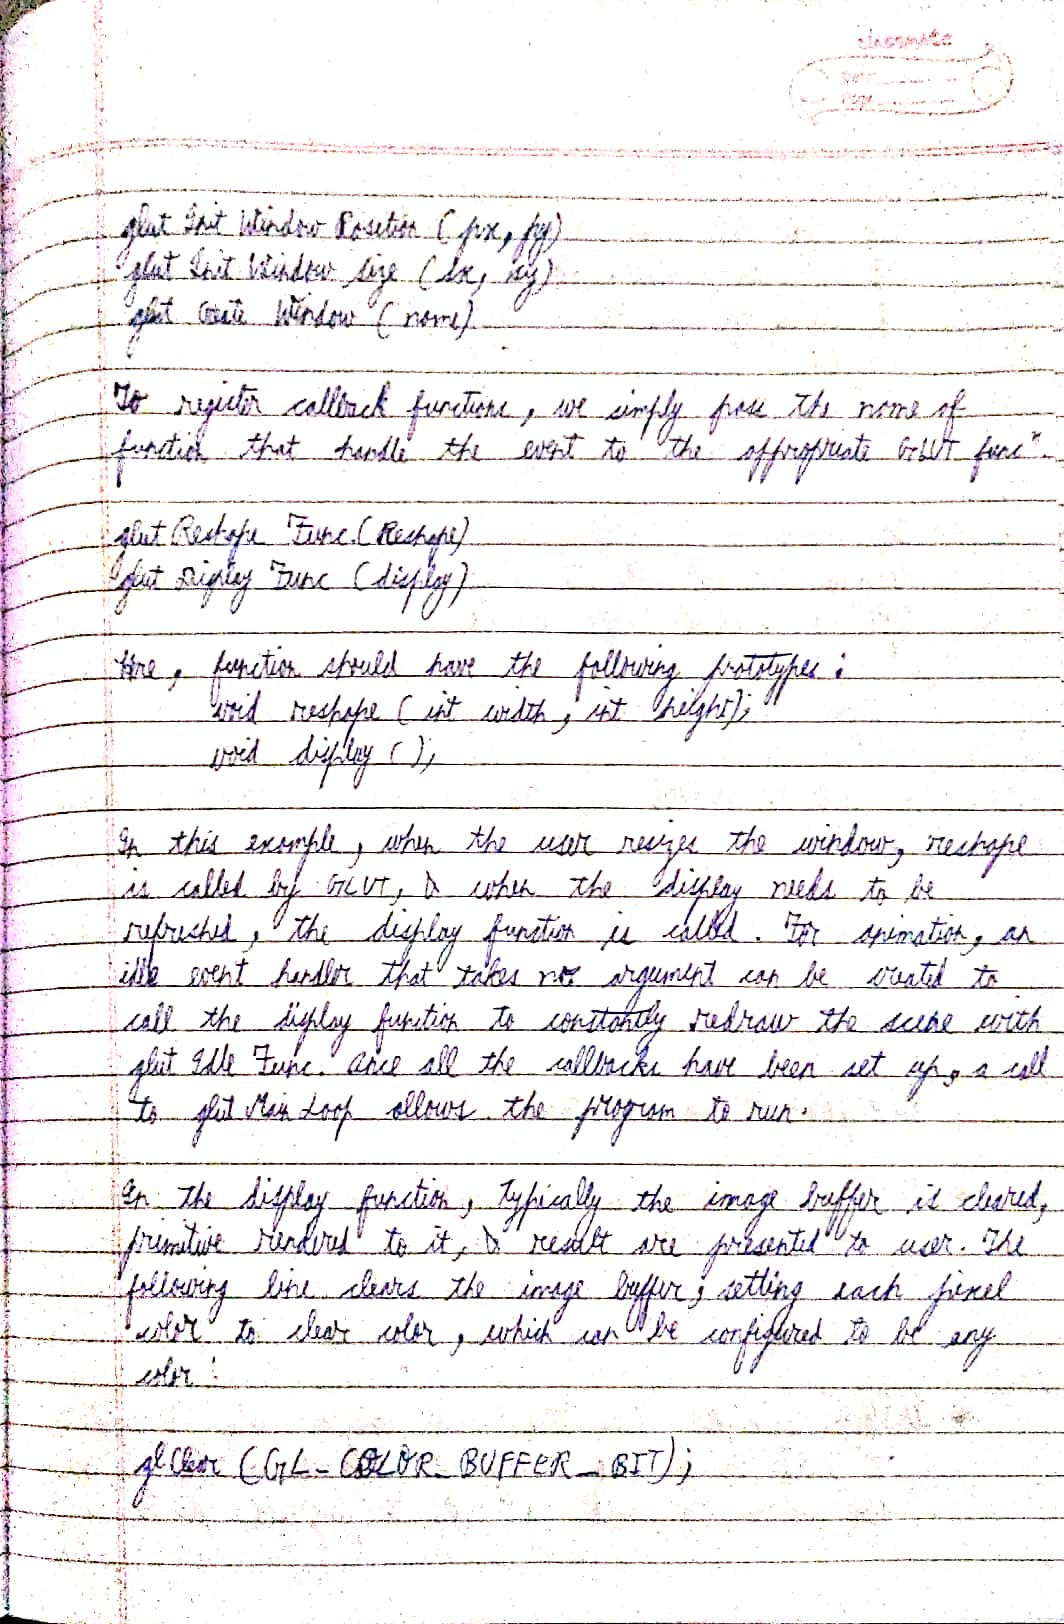 glut Init Window Position ( px, py)
glut Init Window size ( sx, sy)
glut Create Window ( name)
To register callback functions, we simply pass the name of
function that handle the event to the appropriate GLUT funcⁿ.
glut Reshape Func. ( Reshape)
glut Display Func ( display)
Here, function should have the following prototypes :
void reshape ( int width, int height);
void display ( );
In this example, when the user resizes the window, reshape
is called by GLUT, & when the display needs to be
refreshed, the display function is called. For animation, an
idle event handler that takes no argument can be created to
call the display function to constantly redraw the scene with
glut Idle Func. Once all the callbacks have been set up, a call
to glut Main Loop allows the program to run.
In the display function, typically the image buffer is cleared,
primitive rendered to it, & result are presented to user. The
following line clears the image buffer, setting each pixel
color to clear color, which can be configured to be any
color :
gl Clear (GL_COLOR_BUFFER_BIT);